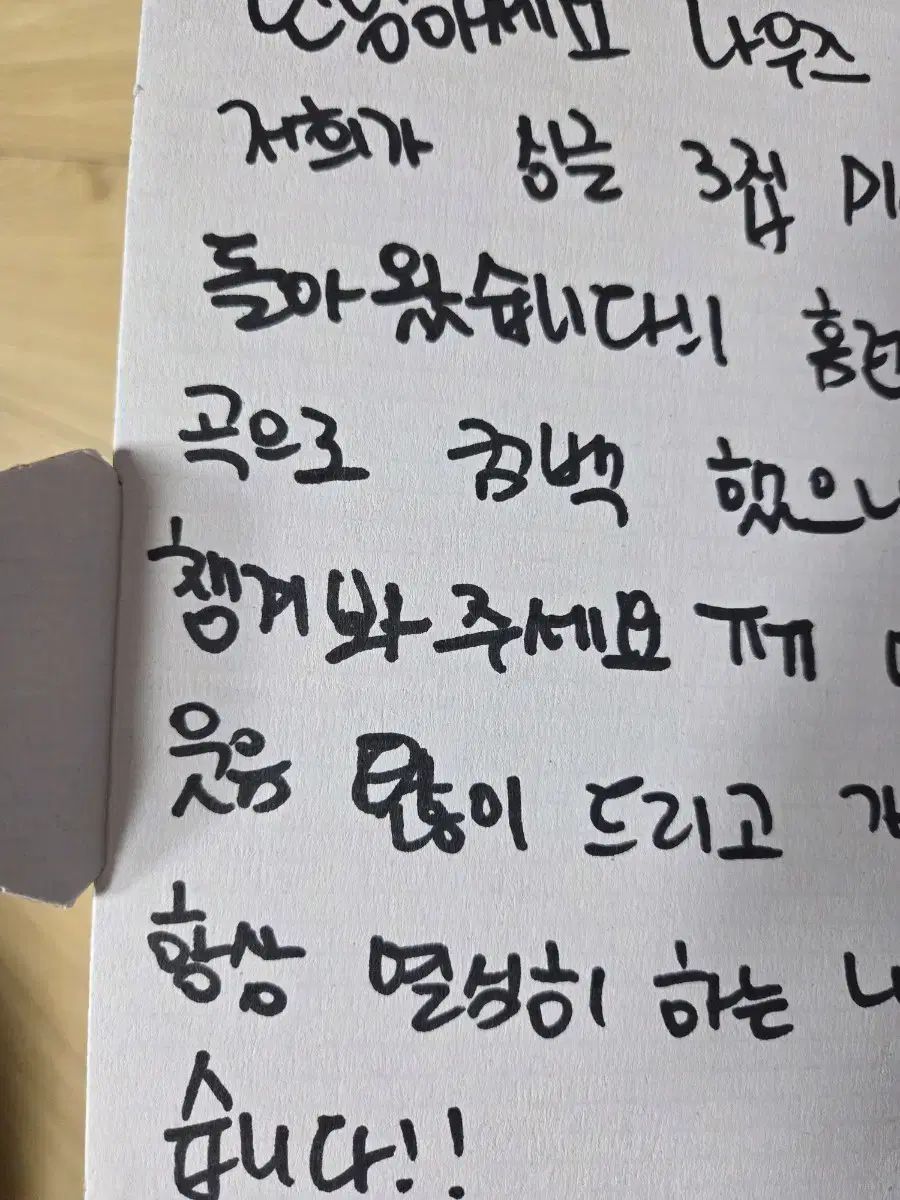 안녕하세요 나우즈
저희가 싱글 3집
돌아왔습니다!!
곡으로 컴백 했으니
챙겨봐주세요 ㅠㅠ
웃음 많이 드리고
항상 열심히 하는
습니다!!